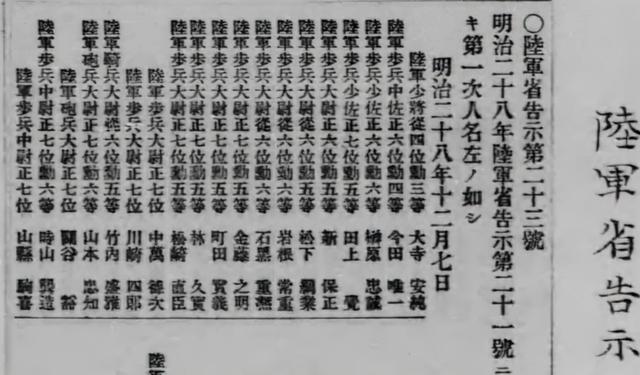 陸軍省告示
〇陸軍省告示第二十三號
明治二十八年陸軍省告示第二十一號ニ
キ第一次人名左ノ如シ
明治二十八年十二月七日
陸軍少將從四位勳三等 大寺 安純
陸軍步兵中佐正六位勳四等 今田 唯一
陸軍步兵少佐從六位勳六等 榊原 忠誠
陸軍步兵少佐正七位勳五等 田上 覺
陸軍步兵大尉正七位勳五等 新 保正
陸軍步兵大尉從六位勳五等 松下 綱業
陸軍步兵大尉從六位勳六等 岩根 常重
陸軍步兵大尉從六位勳六等 石黑 重熈
陸軍步兵大尉正七位勳五等 金藤 之明
陸軍步兵大尉正七位勳五等 町田 實義
陸軍步兵大尉正七位勳五等 林 久實
陸軍步兵大尉正七位勳五等 松崎 直臣
陸軍步兵大尉正七位 中萬 德次
陸軍步兵大尉正七位 川崎 四郎
陸軍騎兵大尉從六位勳五等 竹內 盛雅
陸軍砲兵大尉正七位勳五等 山本 忠知
陸軍砲兵大尉正七位 關谷 豁
陸軍步兵中尉正七位勳六等 時山 龔造
陸軍步兵中尉正七位 山縣 駒喜
陸軍